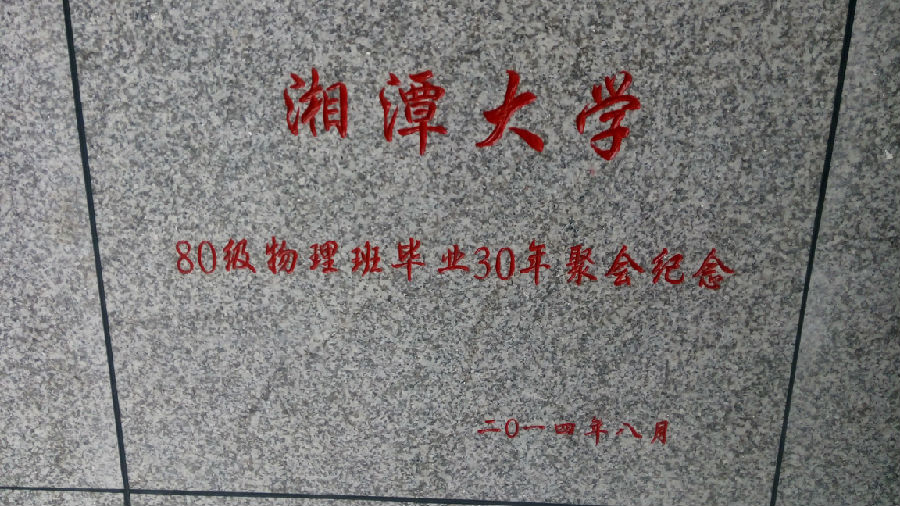 湘潭大学
80级物理班毕业30年聚会纪念
二0一四年八月